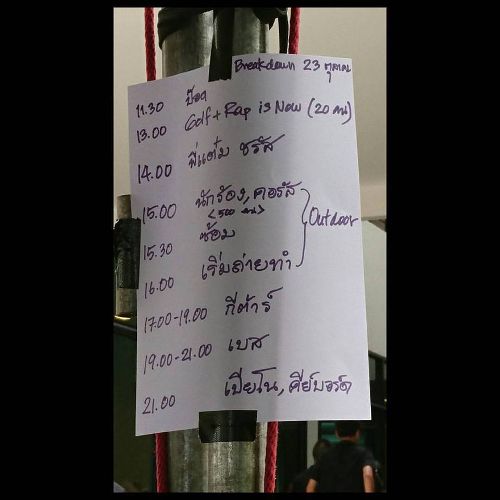 Breakdown 23 ตุลาคม
11.30 ป๊อด
13.00 Golf + Rap is Now (20 คน)
14.00 พี่แต๋ม ชรัส
15.00 นักร้อง, คอรัส
<500 คน>
15.30 ซ้อม
Outdoor
16.00 เริ่มถ่ายทำ
17.00-19.00 กีต้าร์
19.00-21.00 เบส
21.00 เปียโน, คีย์บอร์ด